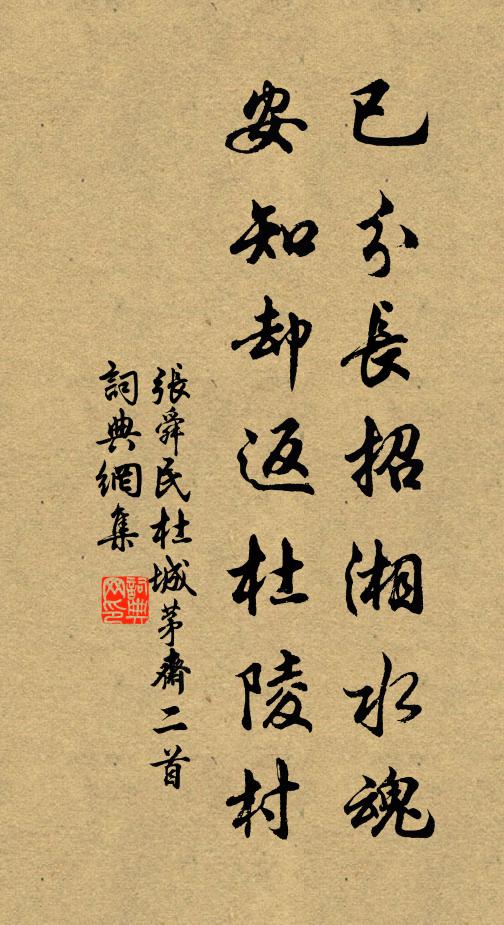 已分長招湘水魂
安知却返杜陵村
張舜民杜城茅齋二首
詞典網集
詞典網印